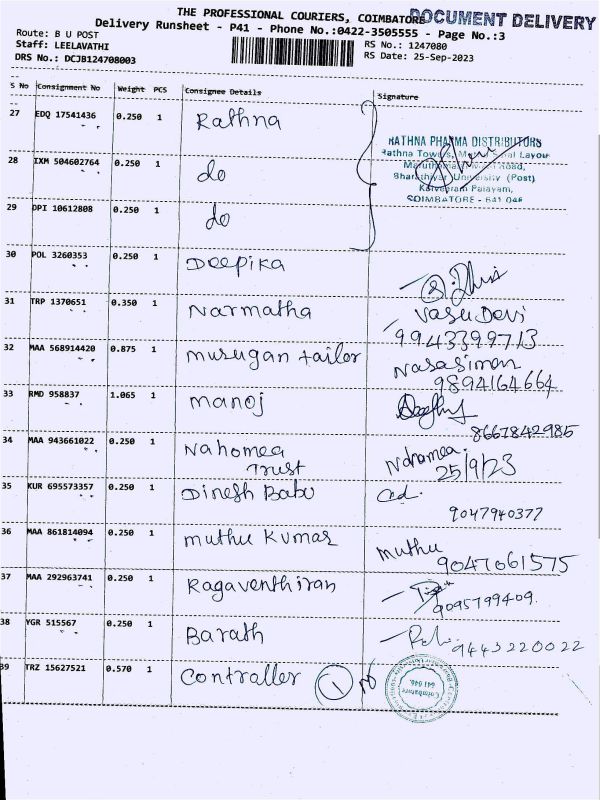 THE PROFESSIONAL COURIERS, COIMBATORE
DOCUMENT DELIVERY
Delivery Runsheet - P41 - Phone No.:0422-3505555 - Page No.:3
Route: B U POST
Staff: LEELAVATHI
DRS No.: DCJB124708003
RS No.: 1247080
RS Date: 25-Sep-2023
S No Consignment No Weight PCS Consignee Details Signature
27 EDQ 17541436 0.250 1 Rathna
RATHNA PHARMA DISTRIBUTORS
Rathna Towers,
28 IXM 504602764 0.250 1 do
Bharathiyar University (Post)
Kalveeram Palayam,
COIMBATORE - 641 046
29 DPI 10612808 0.250 1 do
30 POL 3260353 0.250 1 Deepika
31 TRP 1370651 0.350 1 Narmatha
Vasu Devi
9943399713
32 MAA 568914420 0.875 1 murugan tailor
9894164664
33 RMD 958837 1.065 1 manoj
8667842985
34 MAA 943661022 0.250 1 Nahomea
Trust
Nahomea.
25/9/23
35 KUR 695573357 0.250 1 Dinesh Babu
9047940377
36 MAA 861814094 0.250 1 muthu Kumar
muthu
9047061575
37 MAA 292963741 0.250 1 Ragaventhiran
9095799409.
38 YGR 515567 0.250 1 Barath
9443220022
39 TRZ 15627521 0.570 1 Contraller 1
Coimbatore
641 046.